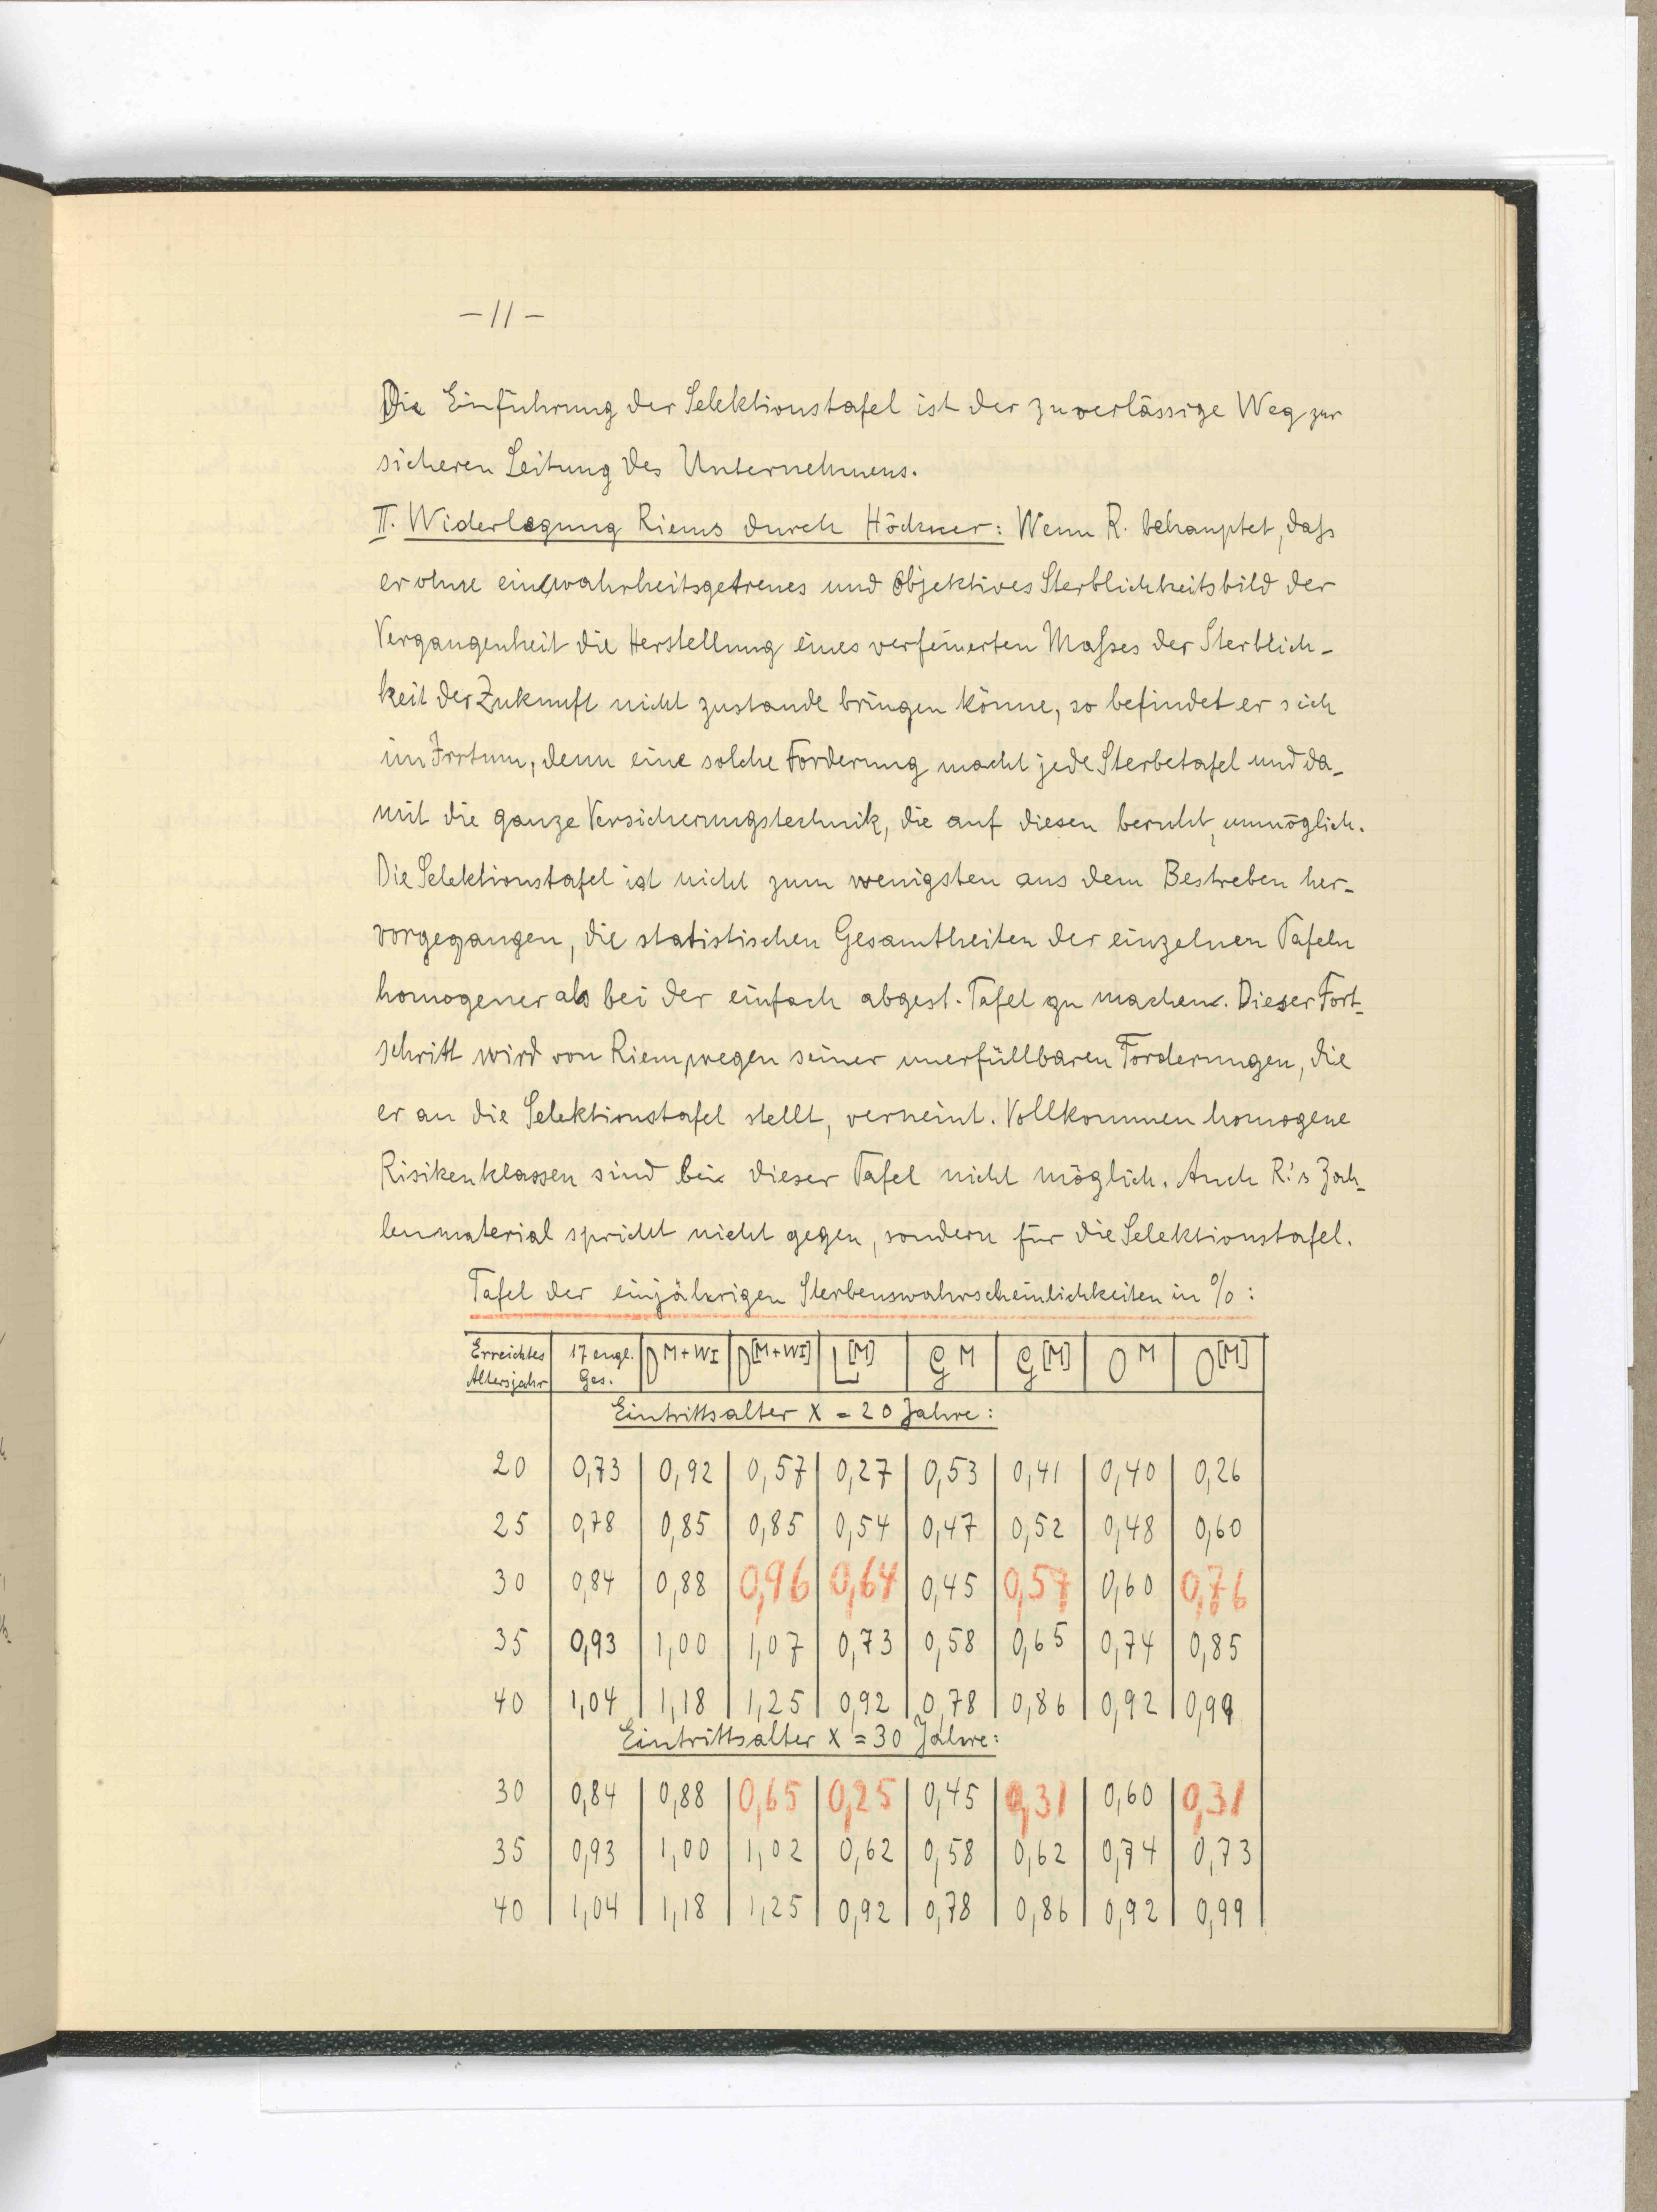 -11-
Die Einführung der Selektionstafel ist der zuverlässige Weg zur
sicheren Leitung des Unternehmens.
II. Widerlegung Riems durch Höckner: Wenn R. behauptet, daß
er ohne ein wahrheitsgetreues und objektives Sterblichkeitsbild der
Vergangenheit die Herstellung eines verfeinerten Maßes der Sterblich-
keit der Zukunft nicht zustande bringen könne, so befindet er sich
im Irrtum, denn eine solche Forderung macht jede Sterbetafel und da-
mit die ganze Versicherungstechnik, die auf diesen beruht, unmöglich.
Die Selektionstafel ist nicht zum wenigsten aus dem Bestreben her-
vorgegangen, die statistischen Gesamtheiten der einzelnen Tafeln
homogener als bei der einfach abgest. Tafel zu machen. Dieser Fort-
schritt wird von Riem wegen seiner unerfüllbaren Forderungen, die
er an die Selektionstafel stellt, verneint. Vollkommen homogene
Risikenklassen sind bei dieser Tafel nicht möglich. Auch R.'s Zah-
lenmaterial spricht nicht gegen, sondern für die Selektionstafel.
Tafel der einjährigen Sterbenswahrscheinlichkeiten in %:
Erreichtes Altersjahr 17 engl. Ges. D^M+WI D^[M+WI] L^[M] G^M G^[M] O^M O^[M]
Eintrittsalter x = 20 Jahre:
20 0,73 0,92 0,57 0,27 0,53 0,41 0,40 0,26
25 0,78 0,85 0,85 0,54 0,47 0,52 0,48 0,60
30 0,84 0,88 0,96 0,64 0,45 0,57 0,60 0,76
35 0,93 1,00 1,07 0,73 0,58 0,65 0,74 0,85
40 1,04 1,18 1,25 0,92 0,78 0,86 0,92 0,99
Eintrittsalter x = 30 Jahre:
30 0,84 0,88 0,65 0,25 0,45 0,31 0,60 0,31
35 0,93 1,00 1,02 0,62 0,58 0,62 0,74 0,73
40 1,04 1,18 1,25 0,92 0,78 0,86 0,92 0,99